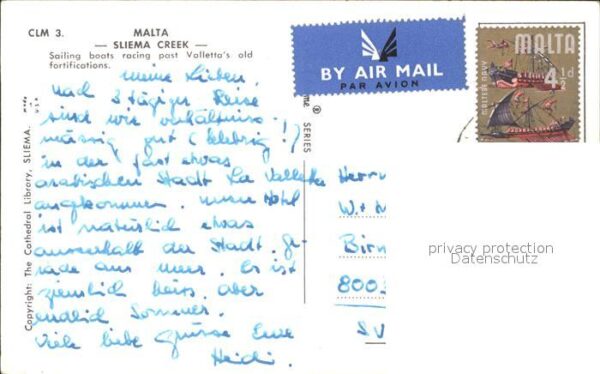 CLM 3.
MALTA
— SLIEMA CREEK —
Sailing boats racing past Valletta's old
fortifications.
BY AIR MAIL
PAR AVION
MALTA
4½d
MALTESE NAVY
meine Lieben,
nach 3 tägiger Reise
sind wir verhältniss-
mässig gut (klebrig!)
in der fast etwas
arabischen Stadt La Valletta
angekommen. unser Hotel
ist natürlich etwas
ausserhalb der Stadt. ge-
rade am meer. Es ist
ziemlich heiss aber
endlich Sommer.
viele liebe grüsse Eure
Heidi.
Herrn
W. +
Birm
800
SERIES
Copyright: The Cathedral Library, SLIEMA.
privacy protection
Datenschutz